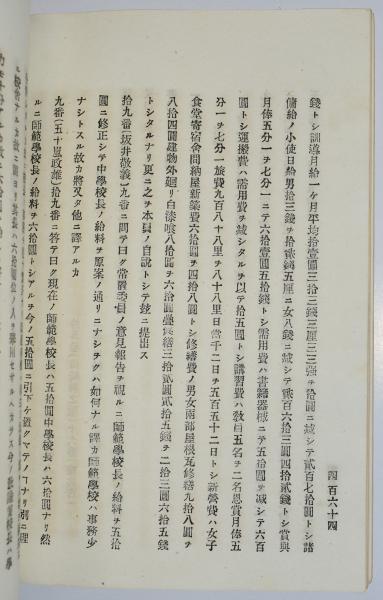 四百六十四
錢トシ訓導月給一ケ月平均拾壹圓三拾三錢三厘三三强ヲ拾圓ニ減シテ貳百七拾圓トシ諸
傭給ノ小使日給男拾三錢ヲ拾貳錢五厘ニ女八錢ニ減シテ貳百六拾三圓四拾貳錢トシ賞與
月俸五分一ヲ七分一ニテ六拾壹圓五拾錢トシ需用費ハ書籍器械ニテ五拾圓ヲ減シテ六百
圓トシ運搬費ハ需用費ヲ減シタルヲ以テ拾五圓トシ講習費ハ敎員五名ヲ二名恩賞月俸五
分一ヲ七分一旅費九百八十八里ヲ八十八里日當千二日ヲ五百五十二日トシ新營費ハ女子
食堂寄宿舍間納屋新築費六拾圓ヲ四拾八圓トシ修繕費ノ男女兩部屋根瓦修繕九拾八圓ヲ
八拾四圓建物外廻リ白漆喰八拾圓ヲ六拾圓疊繕三拾貳圓貳拾五錢ヲ二拾三圓六拾五錢
トシタルナリ更ニ之ヲ本員ノ自說トシテ玆ニ提出ス
拾九番(坂井敬義)九番ニ問テ曰ク常置委員ノ意見報告ヲ視ルニ師範學校長ノ給料ヲ五拾
圓ニ修正シテ中學校長ノ給料ヲ原案ノ通リニナシヲクハ如何ナル譯カ師範學校ハ事務少
ナシトスル故カ將又タ他ニ譯アルカ
九番(五十嵐政雄)拾九番ニ答テ曰ク現在ノ師範學校長ハ五拾圓中學校長ハ六拾圓ナリ然
ルニ師範學校長ノ給料ヲ六拾圓トシアルヲ今ノ五拾圓ニ引下ケ置クマテノヿナリ別ニ理